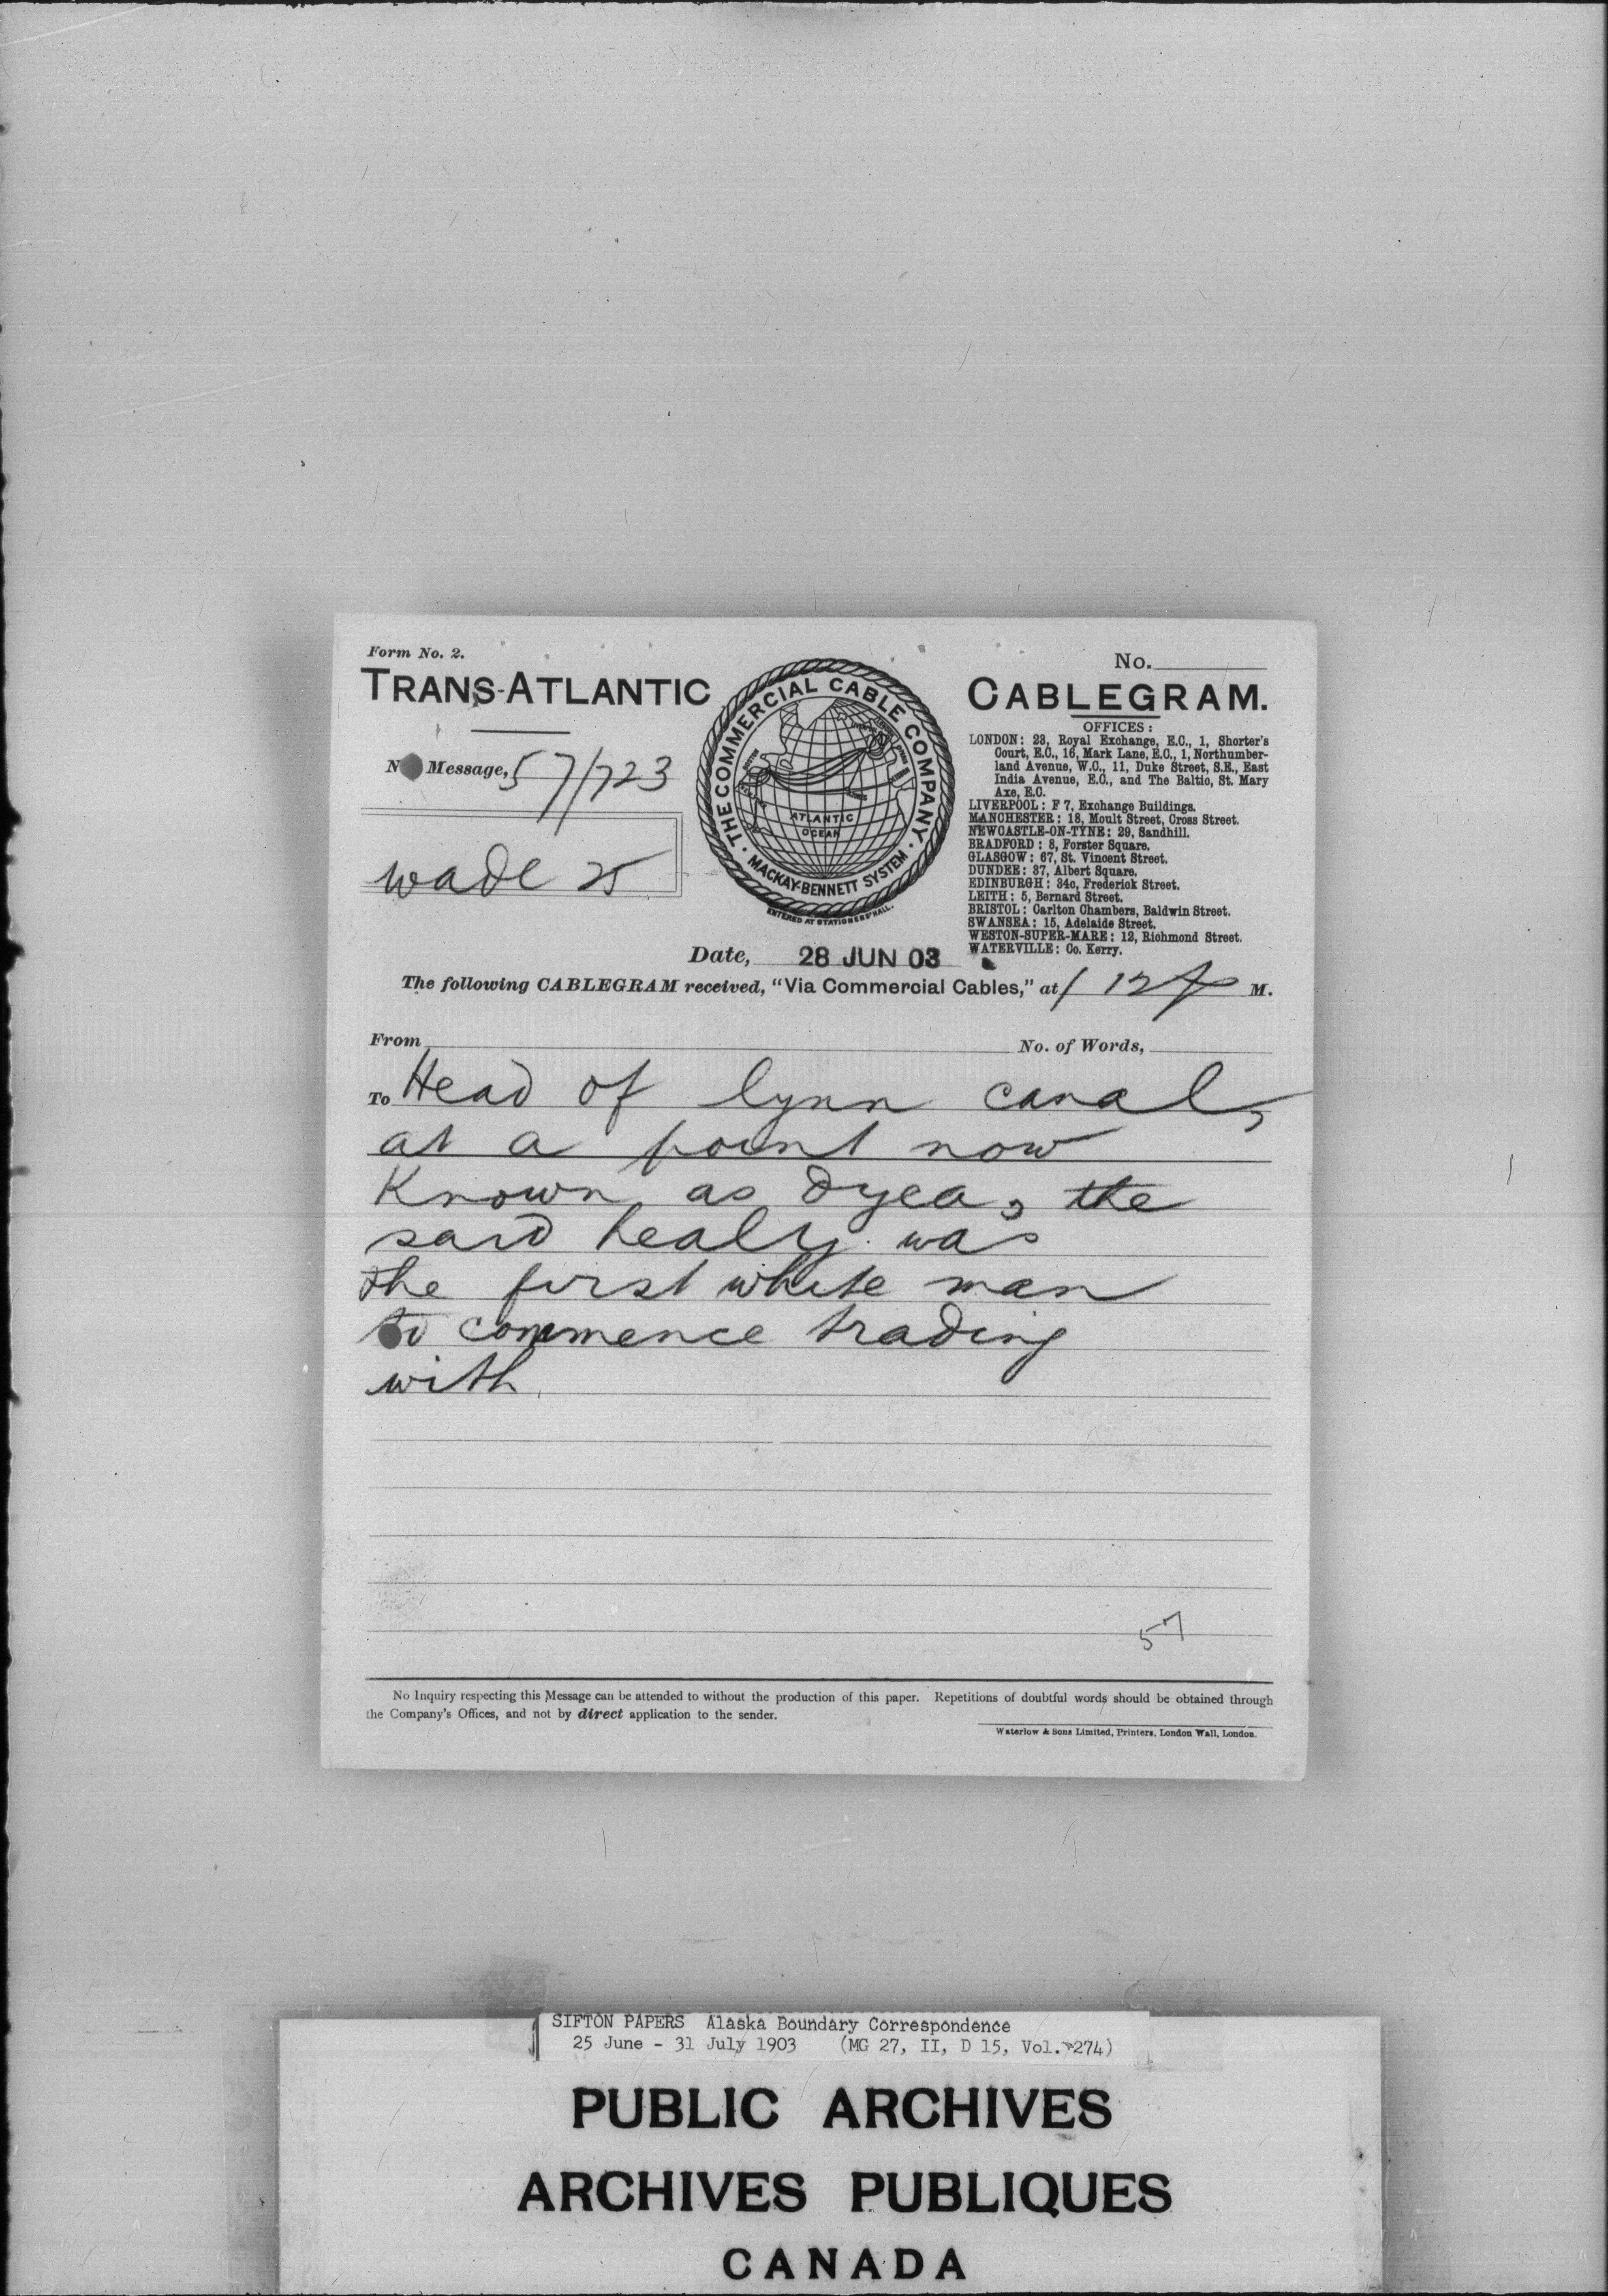 Form No. 2.
TRANS-ATLANTIC
No. Message, 57/723
wade 25
THE COMMERCIAL CABLE COMPANY
MACKAY-BENNETT SYSTEM
ATLANTIC
OCEAN
ENTERED AT STATIONERS' HALL.
No.
CABLEGRAM.
OFFICES:
LONDON: 23, Royal Exchange, E.C., 1, Shorter's
Court, E.C., 16, Mark Lane, E.C., 1, Northumber-
land Avenue, W.C., 11, Duke Street, S.E., East
India Avenue, E.C., and The Baltic, St. Mary
Axe, E.C.
LIVERPOOL: F 7, Exchange Buildings.
MANCHESTER: 18, Moult Street, Cross Street.
NEWCASTLE-ON-TYNE: 29, Sandhill.
BRADFORD: 8, Forster Square.
GLASGOW: 67, St. Vincent Street.
DUNDEE: 37, Albert Square.
EDINBURGH: 34c, Frederick Street.
LEITH: 5, Bernard Street.
BRISTOL: Carlton Chambers, Baldwin Street.
SWANSEA: 15, Adelaide Street.
WESTON-SUPER-MARE: 12, Richmond Street.
WATERVILLE: Co. Kerry.
Date, 28 JUN 03
The following CABLEGRAM received, "Via Commercial Cables," at M.
From No. of Words,
To Head of lynn canal,
at a point now
Known as dyea, the
said healy was
the first white man
to commence trading
with
57
No Inquiry respecting this Message can be attended to without the production of this paper. Repetitions of doubtful words should be obtained through
the Company's Offices, and not by direct application to the sender.
Waterlow & Sons Limited, Printers, London Wall, London.
SIFTON PAPERS Alaska Boundary Correspondence
25 June - 31 July 1903 (MG 27, II, D 15, Vol. 274)
PUBLIC ARCHIVES
ARCHIVES PUBLIQUES
CANADA